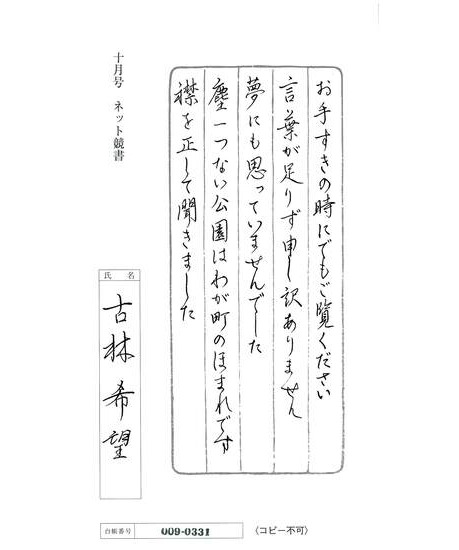 お手すきの時にでもご覧ください
言葉が足りず申し訳ありません
夢にも思っていませんでした
塵一つない公園はわが町のほまれです
襟を正して聞きました
十月号 ネット競書
氏名
古林希望
台帳番号 009-0331 〈コピー不可〉